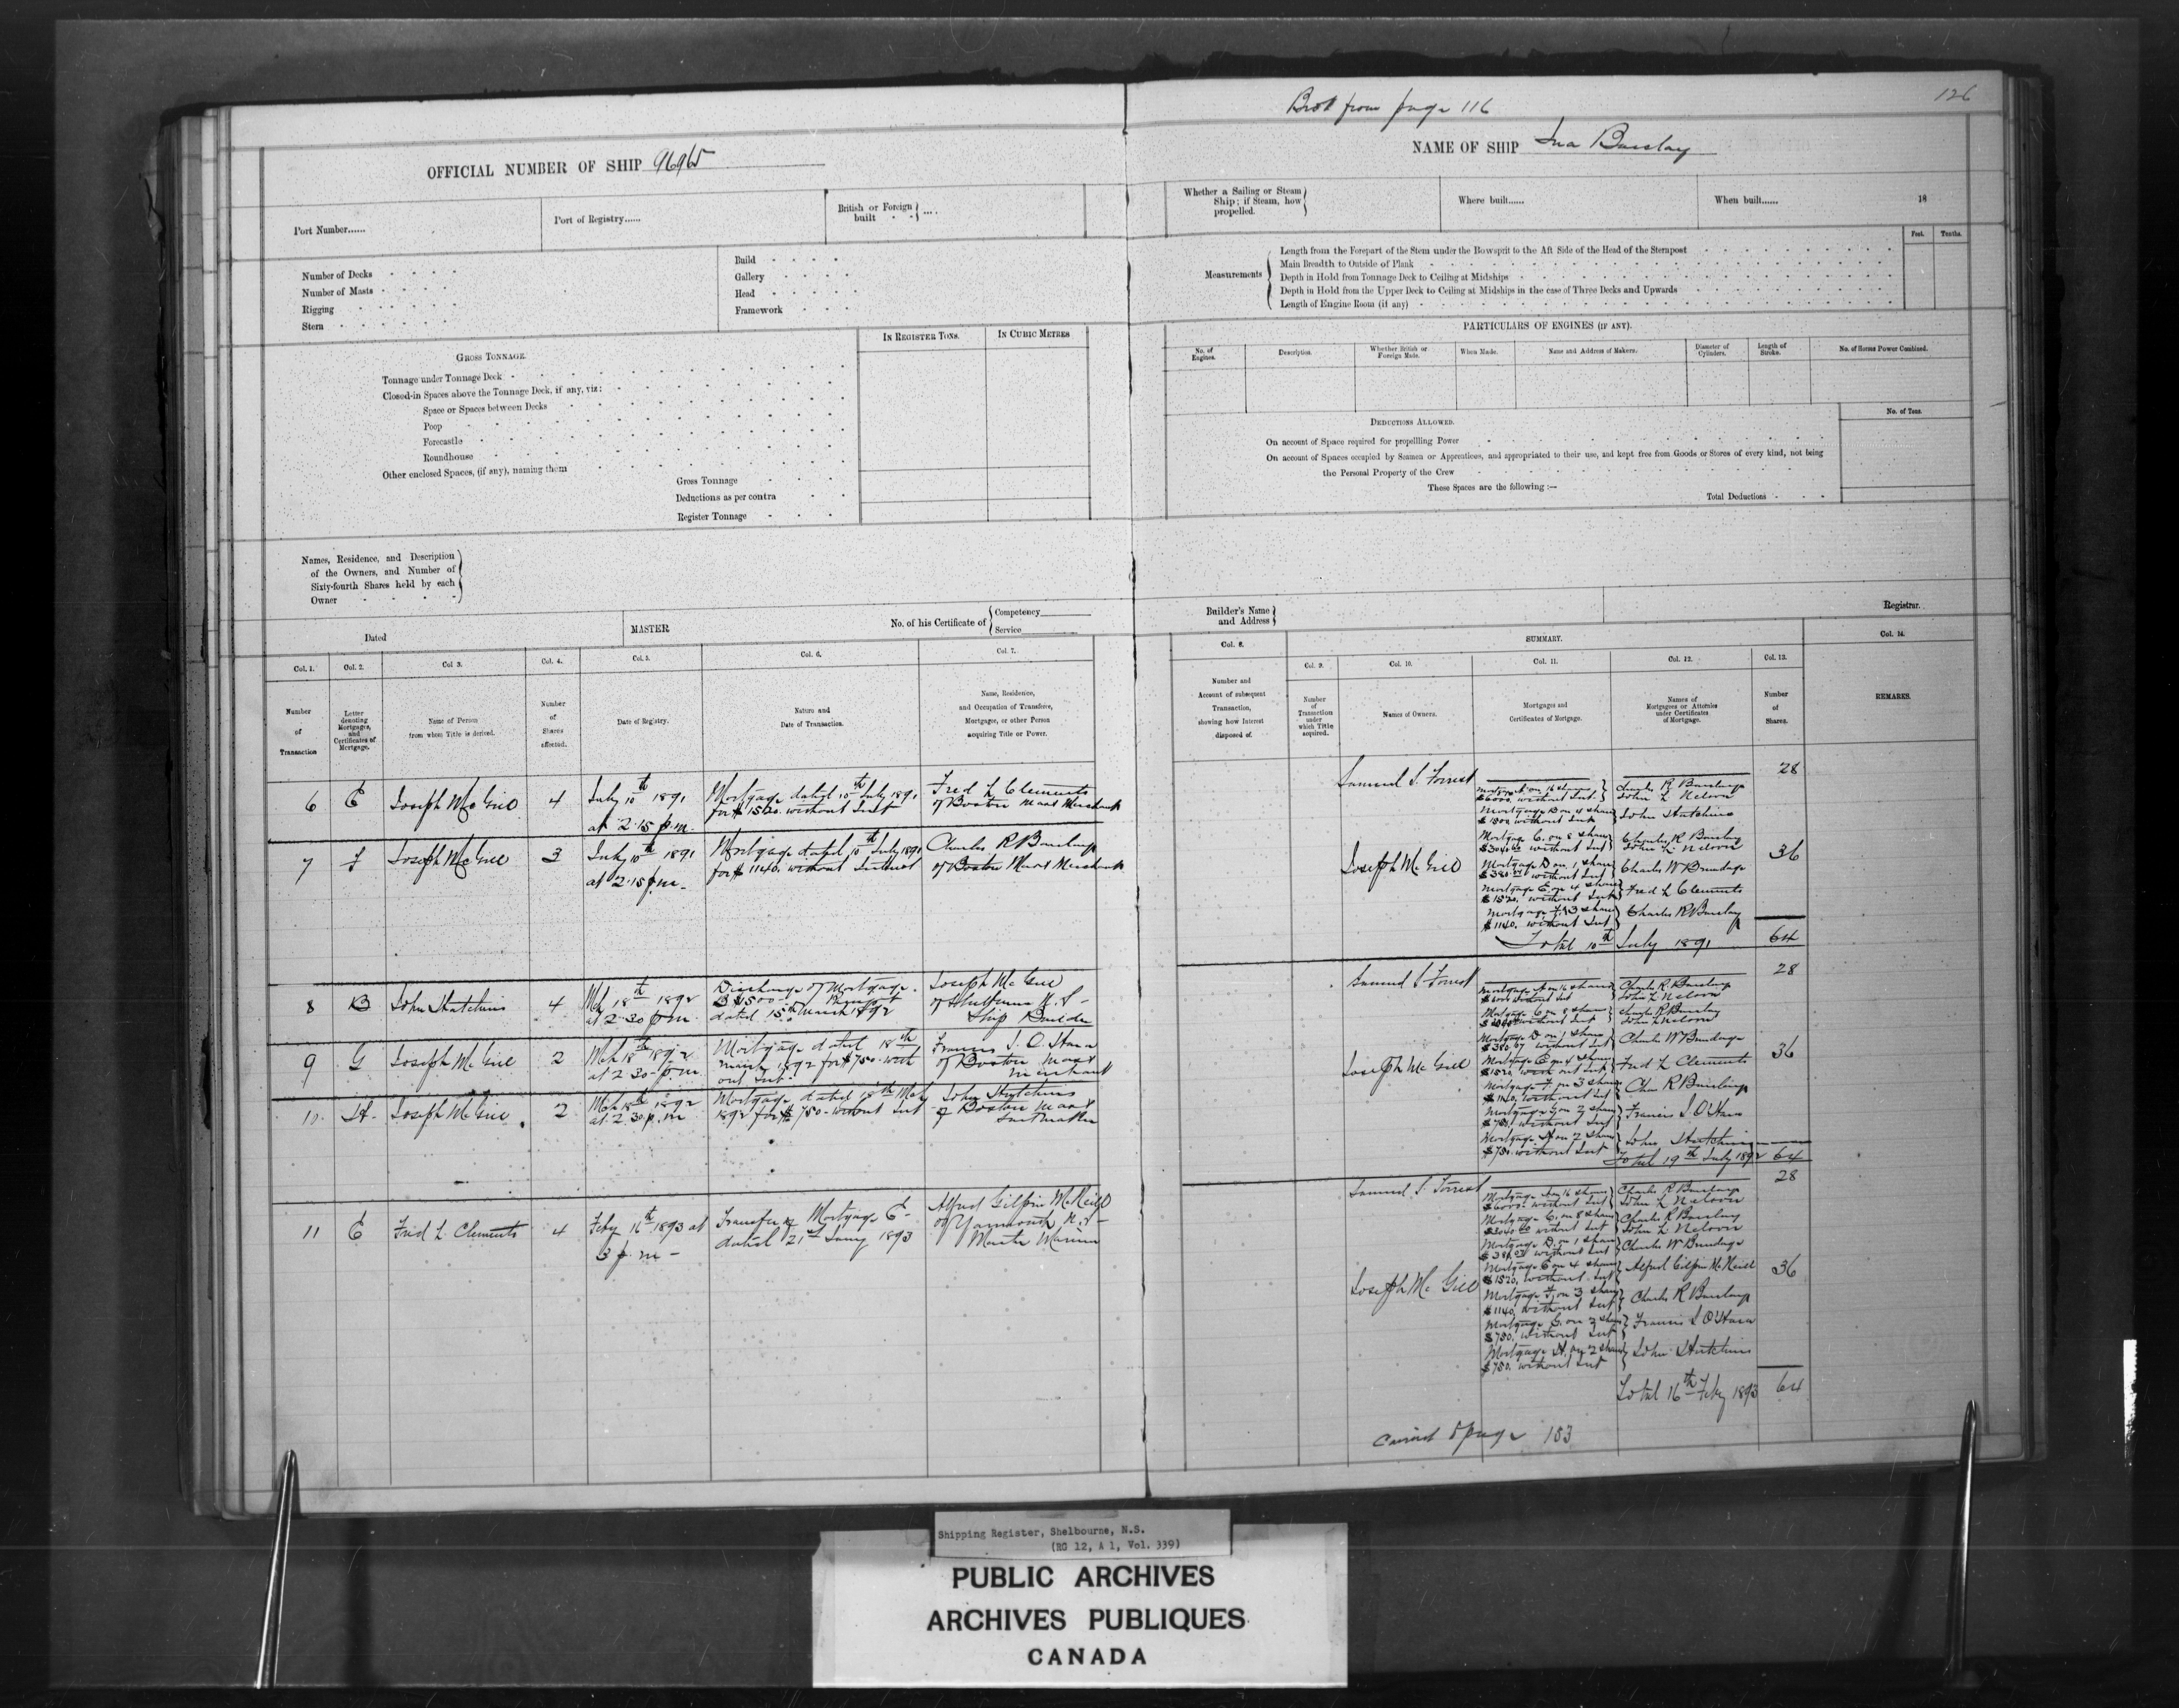 Brot from page 116
126
OFFICIAL NUMBER OF SHIP 96965
NAME OF SHIP Ina Barclay
Port Number......
Port of Registry......
British or Foreign built ....
Whether a Sailing or Steam Ship; if Steam, how propelled.
Where built......
When built......
18
Number of Decks
Number of Masts
Rigging
Stern
Build
Gallery
Head
Framework
Measurements
Feet. Tenths.
Length from the Forepart of the Stem under the Bowsprit to the Aft Side of the Head of the Sternpost
Main Breadth to Outside of Plank
Depth in Hold from Tonnage Deck to Ceiling at Midships
Depth in Hold from the Upper Deck to Ceiling at Midships in the case of Three Decks and Upwards
Length of Engine Room (if any)
GROSS TONNAGE.
IN REGISTER TONS.
IN CUBIC METRES
Tonnage under Tonnage Deck
Closed-in Spaces above the Tonnage Deck, if any, viz:
Space or Spaces between Decks
Poop
Forecastle
Roundhouse
Other enclosed Spaces, (if any), naming them
Gross Tonnage
Deductions as per contra
Register Tonnage
PARTICULARS OF ENGINES (IF ANY).
No. of Engines.
Description.
Whether British or Foreign Made.
When Made.
Name and Address of Makers.
Diameter of Cylinders.
Length of Stroke.
No. of Horse Power Combined.
DEDUCTIONS ALLOWED.
No. of Tons.
On account of Space required for propellling Power
On account of Spaces occupied by Seamen or Apprentices, and appropriated to their use, and kept free from Goods or Stores of every kind, not being
the Personal Property of the Crew
These Spaces are the following :—
Total Deductions
Names, Residence, and Description
of the Owners, and Number of
Sixty-fourth Shares held by each
Owner
Dated
MASTER
No. of his Certificate of
Competency
Service
Builder's Name
and Address
Registrar.
Col. 1.
Number of Transaction
Col. 2.
Letter denoting Mortgages, and Certificates of Mortgage.
Col 3.
Name of Person from whom Title is derived.
Col. 4.
Number of Shares effected.
Col. 5.
Date of Registry.
Col. 6.
Nature and Date of Transaction.
Col. 7.
Name, Residence, and Occupation of Transferee, Mortgagee, or other Person acquiring Title or Power.
Col. 8.
Number and Account of subsequent Transaction, showing how Interest disposed of.
SUMMARY.
Col. 9.
Number of Transaction under which Title acquired.
Col. 10.
Names of Owners.
Col. 11.
Mortgages and Certificates of Mortgage.
Col. 12.
Names of Mortgagees or Attornies under Certificates of Mortgage.
Col. 13.
Number of Shares.
Col. 14.
REMARKS.
6 E Joseph McGill 4
July 10th 1891
at 2.15 p.m.
Mortgage dated 10th July 1891
for $1520. without Inst
Fred L Clements
of Boston Mass Merchant
7 F Joseph McGill 3
July 10th 1891
at 2.15 p.m.
Mortgage dated 10th July 1891
for $1140. without Interest
Charles R Barclay
of Boston Mass Merchant
8 B John Hutchins 4
Mch 18th 1892
at 2.30 p.m.
Discharge of Mortgage.
B $1500
dated 15th March 1892
Joseph McGill
of Shelburne N.S-
Ship Builder
9 G Joseph McGill 2
Mch 18th 1892
at 2 30 p.m.
Mortgage dated 18th
March 1892 for $750. with
out Int.
Francis J. O'Hara
of Boston Mass
Merchant
10. H. Joseph McGill 2
Mch 18th 1892
at 2.30 p.m
Mortgage dated 18th Mch
1892 for $750. without Int
John Hutchins
of Boston Mass
11 E Fred L. Clements 4
Feby 16th 1893 at
3 p.m -
Transfer of Mortgage E-
dated 21st Jany 1893
Alfred Gilpin McNeill
of Yarmouth N.S-
Master Mariner
Samuel S. Forrest 28
Mortgage A on 16 shares
$6000. without Int.
Charles R Barclay
John L Nelson
Mortgage B on 4 shares
$1500 without Int
John Hutchins
Mortgage C. on 8 shares
$3040.00 without Int
Charles R Barclay
John L Nelson
Joseph McGill 36
Mortgage D on 1 share
$380.00 without Int
Charles W Brundage
Mortgage E on 4 shares
$1520. without Int
Fred L Clements
Mortgage F. on 3 shares
$1140. without Int
Charles R Barclay
Total 10th July 1891 64
Samuel S Forrest 28
Mortgage A on 16 shares
$6000 without Int
Charles R. Barclay
John L Nelson
Mortgage C on 8 shares
$3040 without Int
Charles R Barclay
John L Nelson
Mortgage D on 1 share
without Int
Charles W Brundage
Joseph McGill 36
Mortgage E on 4 shares
$1520 without Int
Fred L Clements
Mortgage F. on 3 shares
$1140. without Int
Chas R Barclay
Mortgage G on 2 shares
$750. without Int
Francis J. O'Hara
Mortgage H on 2 shares
$750. without Int
John Hutchins
Total 19th July 1892 64
Samuel S. Forrest 28
Mortgage A on 16 shares
$6000. without Int
Charles R Barclay
John L Nelson
Mortgage C. on 8 shares
$3040.00 without Int
Charles R Barclay
John L Nelson
Mortgage D. on 1 share
without Int
Charles W Brundage
Joseph McGill 36
Mortgage E on 4 shares
$1520. without Int
Alfred Gilpin McNeill
Mortgage F. on 3 shares
$1140. without Int
Charles R Barclay
Mortgage G. on 2 shares
$750. without Int
Francis J O'Hara
Mortgage H. on 2 shares
$750. without Int
John Hutchins
Total 16th Feby 1893 64
page 153
Shipping Register, Shelbourne, N.S.
(RG 12, A 1, Vol. 339)
PUBLIC ARCHIVES
ARCHIVES PUBLIQUES
CANADA